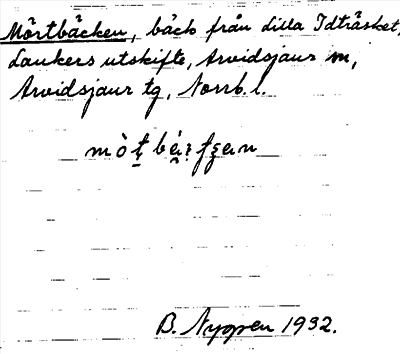 Mörtbäcken, bäck från lilla Idträsket,
Laukers utskifte, Arvidsjaur sn,
Arvidsjaur tg, Norrb. l.
B. Nygren 1932.